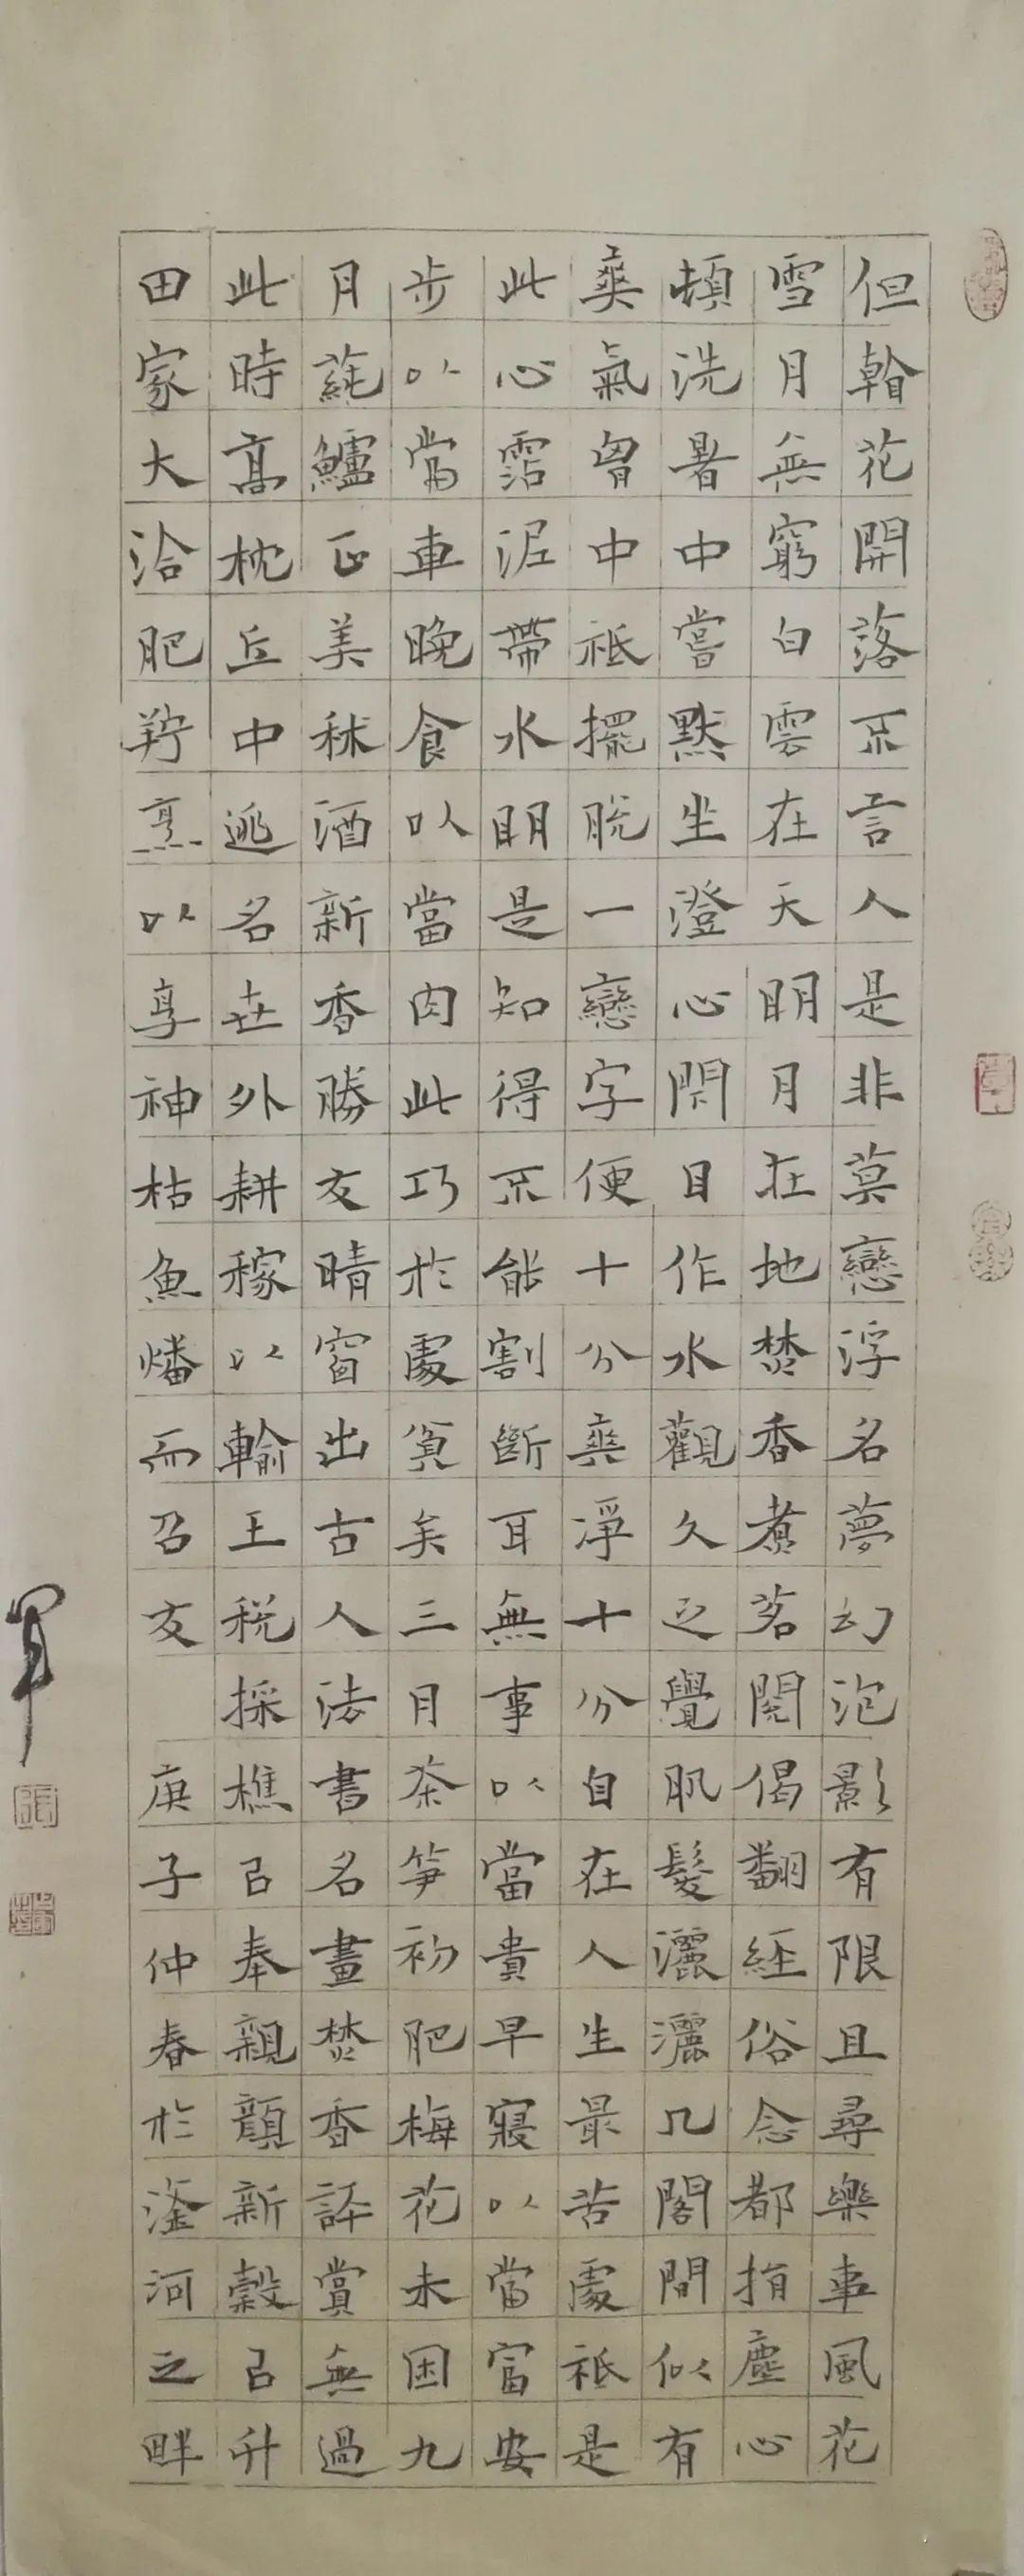 但看花開落不言人是非莫戀浮名夢幻泡影有限且尋樂事風花
雪月無窮白雲在天明月在地焚香煮茗閱偈翻經俗念都捐塵心
頓洗暑中嘗默坐澄心閉目作水觀久之覺肌髮灑灑几閣間似有
爽氣胸中祗擺脫一戀字便十分爽淨十分自在人生最苦處祗是
此心霑泥帶水明是知得不能割斷耳無事以當貴早寢以當富安
步以當車晚食以當肉此巧於處貧矣三月茶筍初肥梅花未困九
月蓴鱸正美秫酒新香勝友晴窗出古人法書名畫焚香評賞無過
此時高枕丘中逃名世外耕稼以輸王稅採樵以奉親顏新穀既升
田家大洽肥羜烹以享神枯魚燔而召友 庚子仲春於滏河之畔